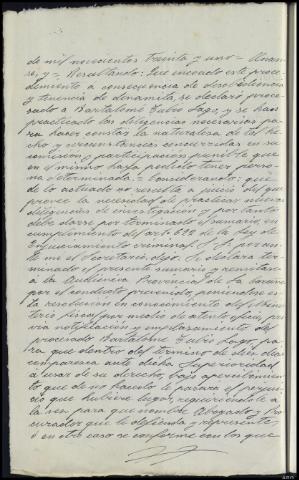 de mil novecientos treinta y uno = 
se, y =. Resultando: Que incoado este proce-
dimiento a consecuencia de desobediencia
y tenencia de dinamita, se declaró proce-
sado a Bartolomé Zubio Lago, y se han
practicado las diligencias necesarias pa-
ra hacer constar la naturaleza de tal he-
cho y circunstancias concurridas en su
comisión, y participación presente que
en el mismo haya podido tener perso-
na determinada.= Considerando: que
de lo actuado no resulta a juicio del que
provee la necesidad de practicar nuevas
diligencias de investigación y por tanto
debe darse por terminado el sumario, en
cumplimiento del art. 622 de la Ley de
Enjuiciamiento criminal. S. S. por an-
te mi el Secretario, dijo: Se declara ter-
minado el presente sumario y remítase
a la Audiencia Provincial de
por el conducto prevenido, poniéndose es-
ta resolución en conocimiento del Minis-
terio fiscal por medio de atento oficio, pre-
via notificación y emplazamiento del
procesado Bartolomé Zubio Lago, pa-
ra que dentro del término de diez días
comparezca ante dicha Superioridad
a usar de su derecho, bajo apercibimien-
to que de no hacerlo le parará el perjui-
cio que hubiere lugar, requiriéndole a
la vez para que nombre Abogado y Pro-
curador que le defienda y represente,
o en otro caso se conforme con los que